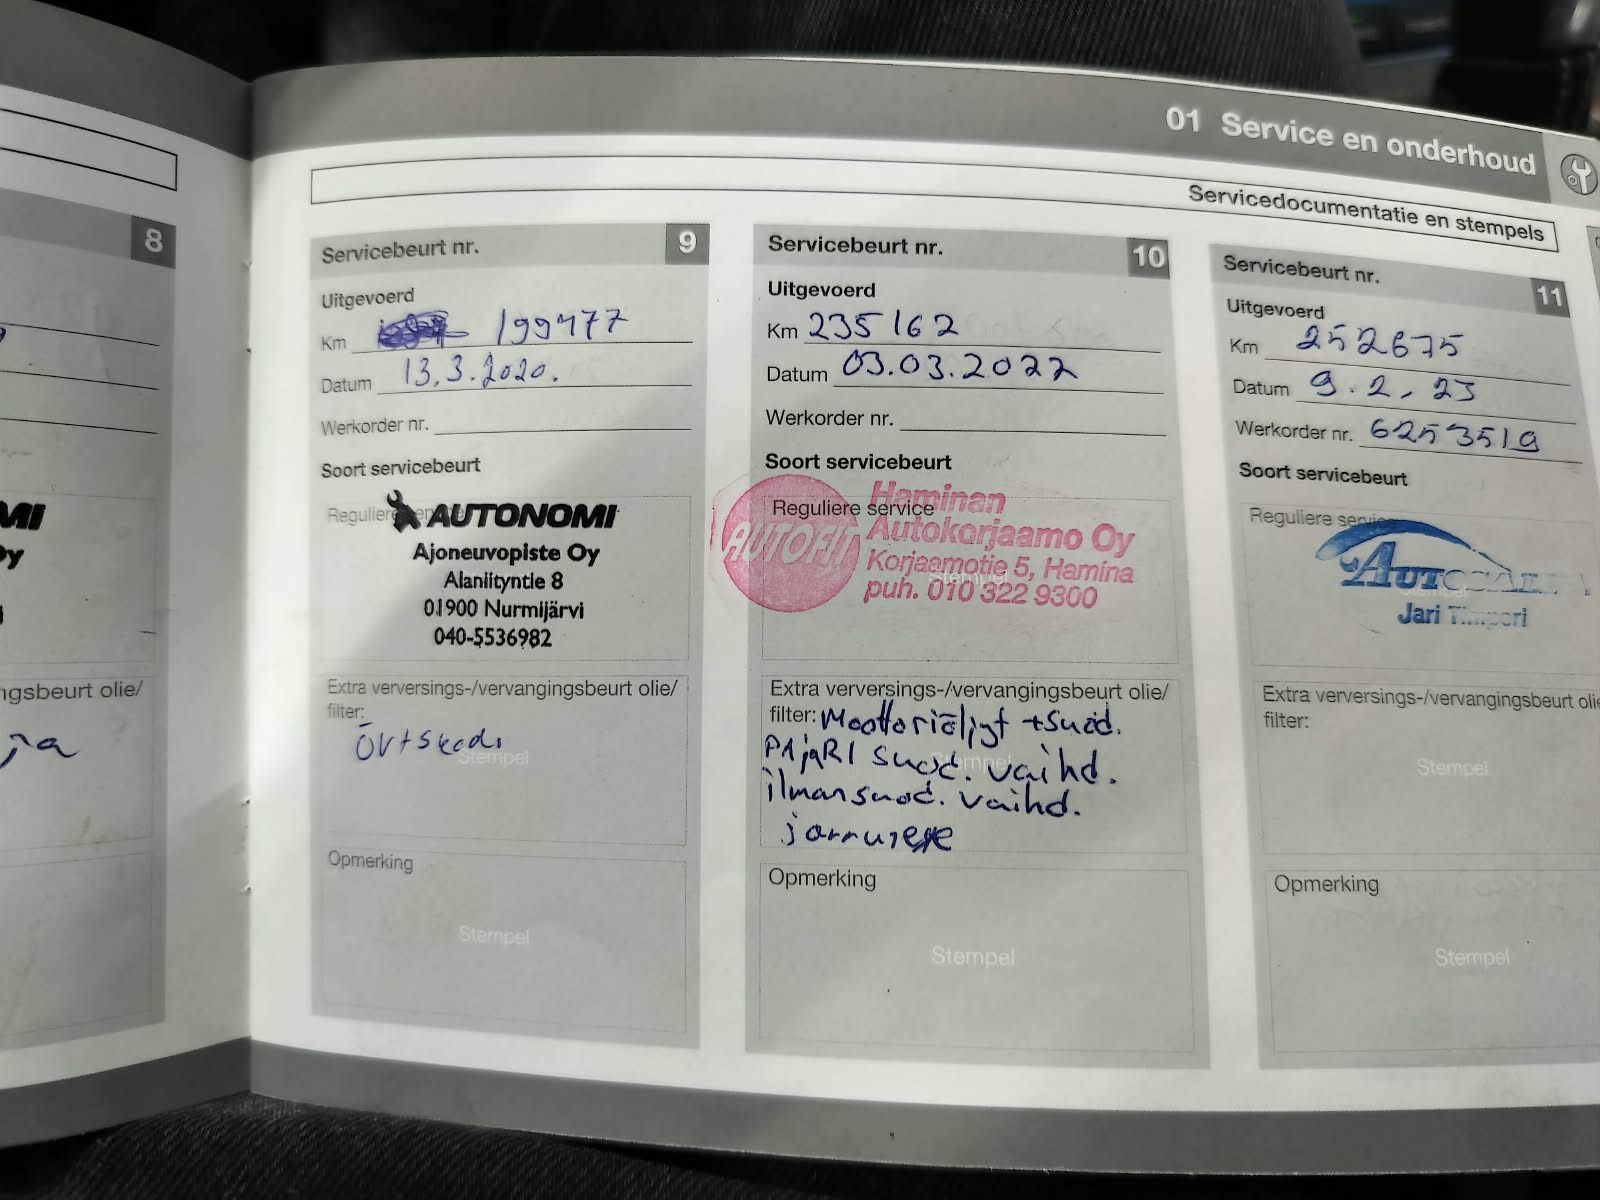 01 Service en onderhoud
Servicedocumentatie en stempels
8
MI
Oy
ngsbeurt olie/
Servicebeurt nr. 9
Uitgevoerd
Km 199477
Datum 13.3.2020.
Werkorder nr.
Soort servicebeurt
Reguliere service
AUTONOMI
Ajoneuvopiste Oy
Alaniityntie 8
01900 Nurmijärvi
040-5536982
Extra verversings-/vervangingsbeurt olie/
filter:
Stempel
Opmerking
Stempel
Servicebeurt nr. 10
Uitgevoerd
Km 235162
Datum 03.03.2022
Werkorder nr.
Soort servicebeurt
Reguliere service
AUTOFIT
Haminan
Autokorjaamo Oy
Korjaamotie 5, Hamina
puh. 010 322 9300
Stempel
Extra verversings-/vervangingsbeurt olie/
filter: Moottoriöljyt + suod.
Stempel
suod. vaihd.
ilmansuod. vaihd.
Opmerking
Stempel
Servicebeurt nr. 11
Uitgevoerd
Km 252675
Datum 9.2.23
Werkorder nr. 6253519
Soort servicebeurt
Reguliere service
Jari
Extra verversings-/vervangingsbeurt olie
filter:
Stempel
Opmerking
Stempel